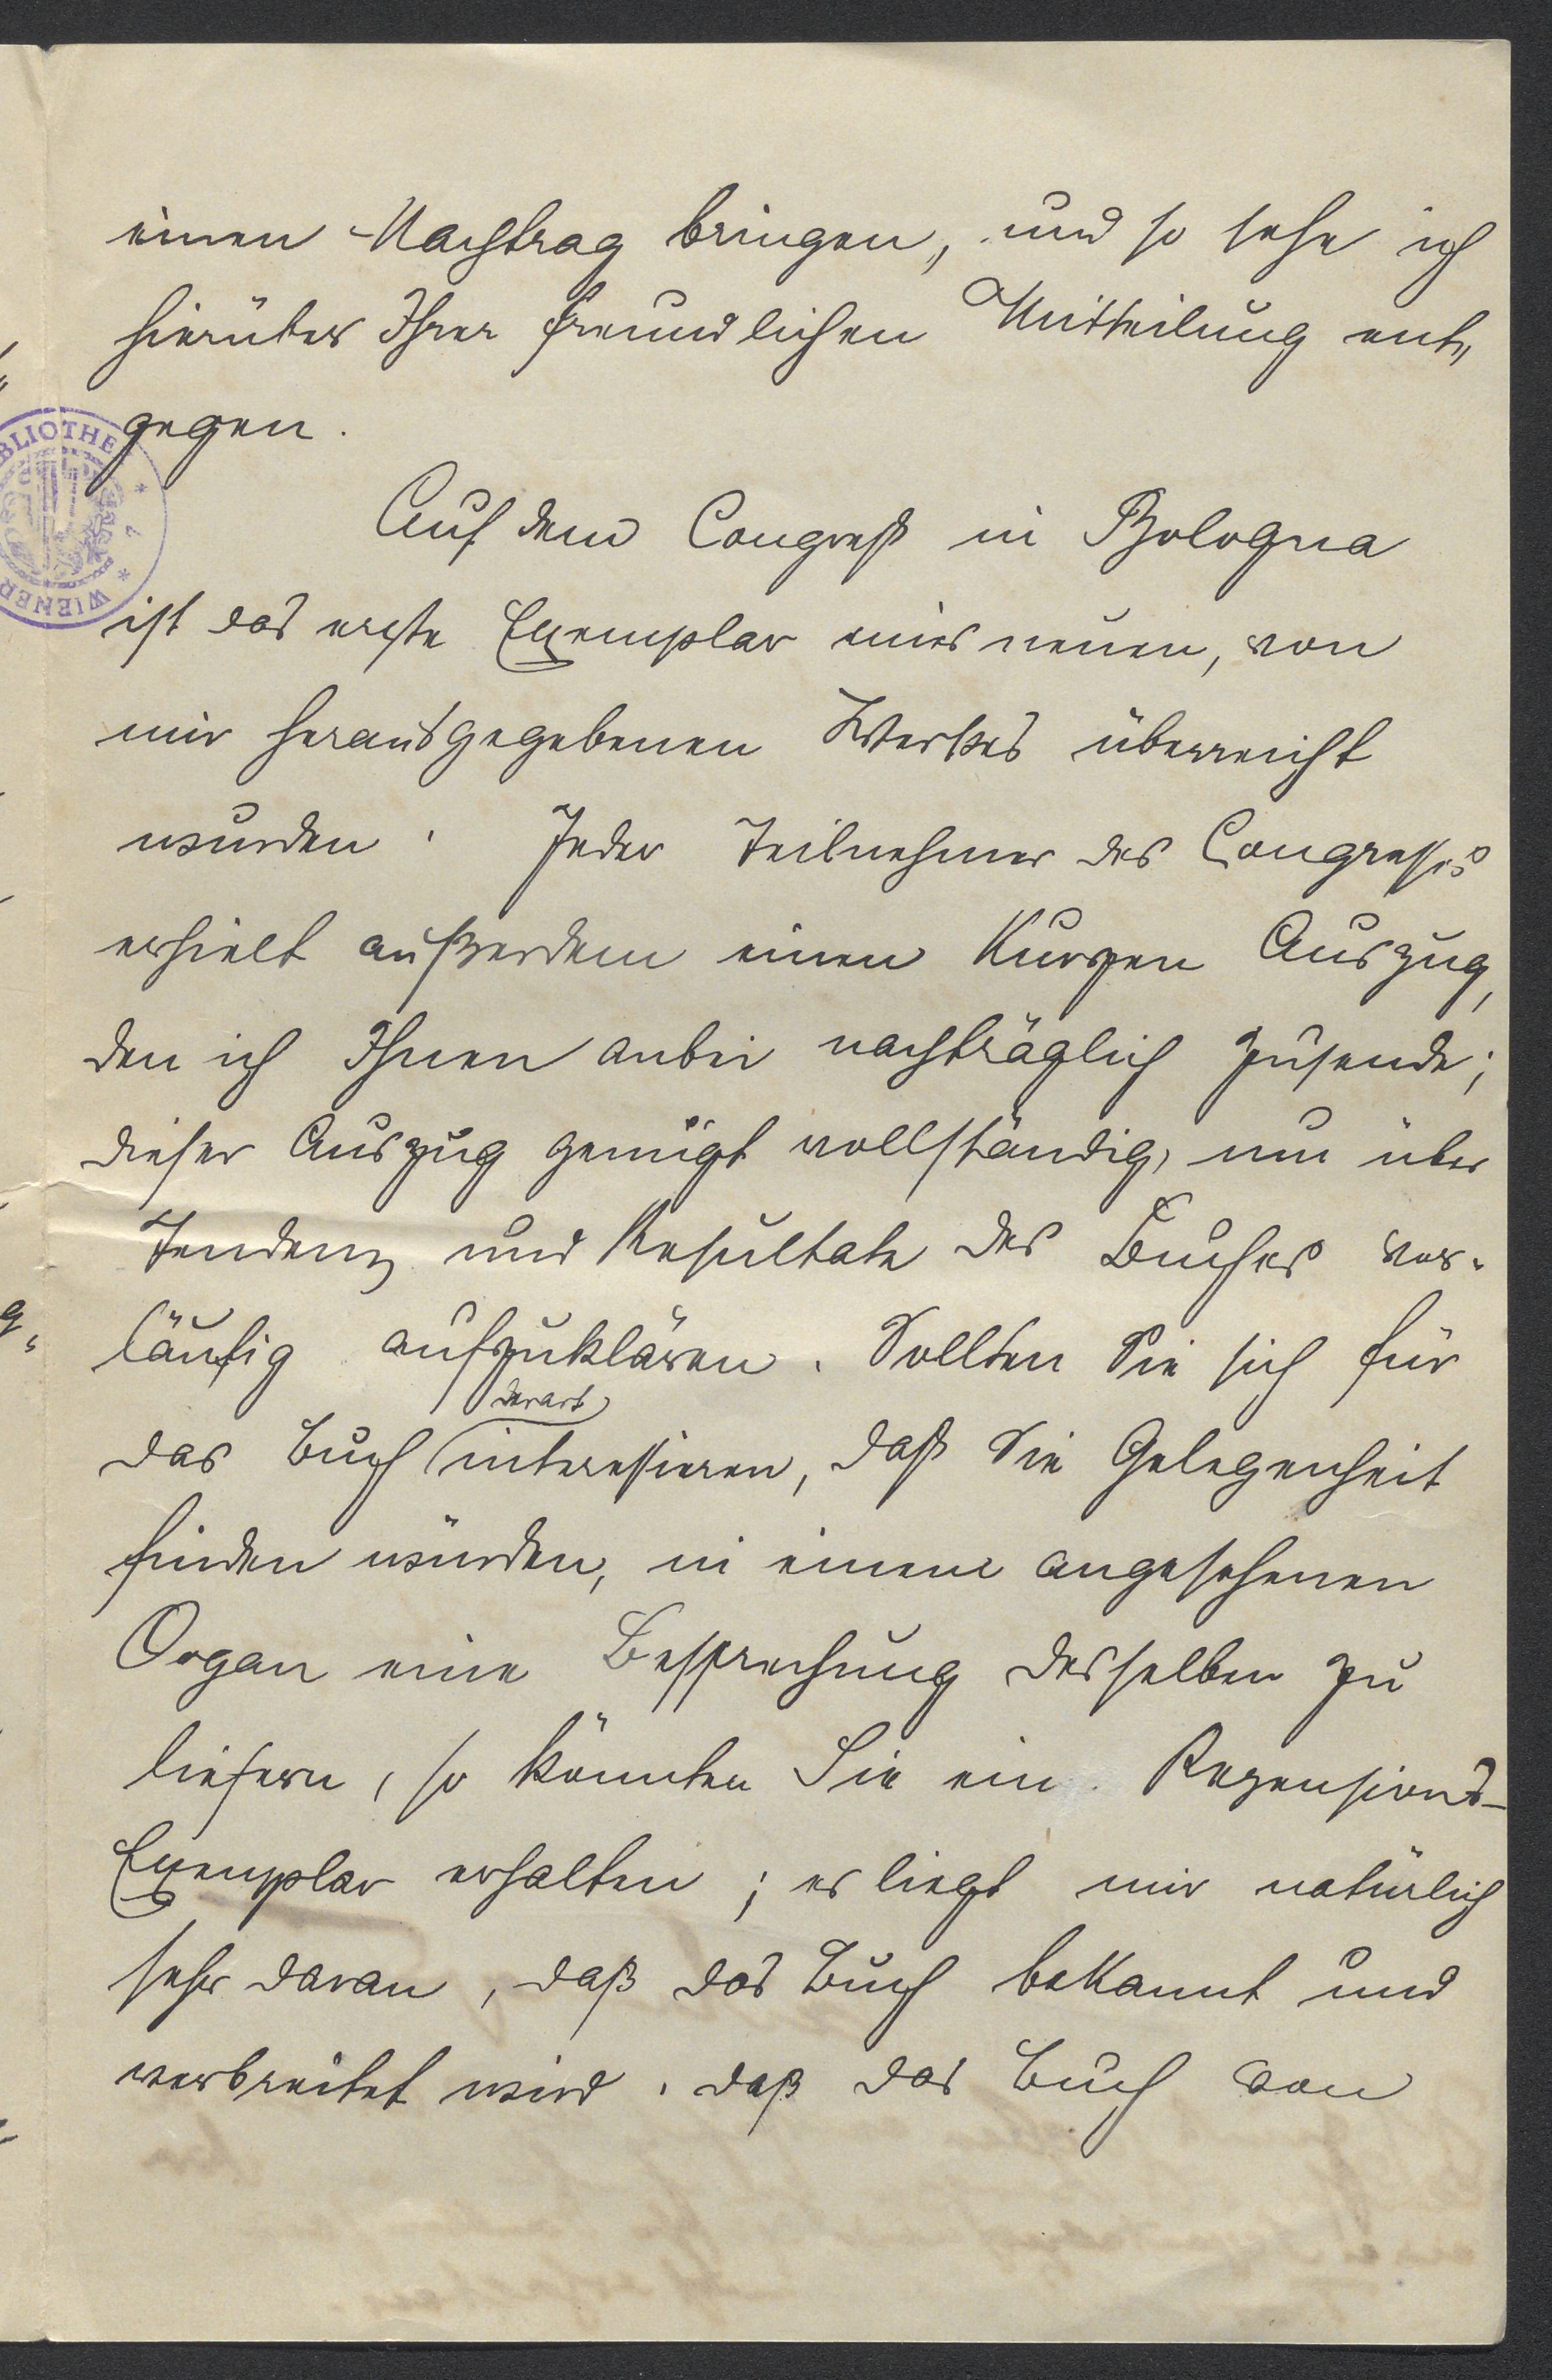 einen Nachtrag bringen, und so sehe ich
hierüber Ihrer freundlichen Mitteilung ent„
gegen.
Auf dem Congreß in Bologna
ist das erste Exemplar eines neuen, von
mir herausgegebenen Werkes überreicht
wurden. Jeder Teilnehmer des Congresses
erhielt außerdem einen kurzen Auszug,
den ich Ihnen anbei nachträglich zusende;
dieser Auszug genügt vollständig, um über
Tendenz und Resultate des Buches vor-
läufig aufzuklären. Sollten Sie sich für
derart
das Buch interessieren, daß Sie Gelegenheit
finden würden, in einem angesehenen
Organ eine Besprechung desselben zu
liefern, so könnten Sie ein Rezensions-
Exemplar erhalten; es liegt mir natürlich
sehr daran, daß das Buch bekannt und
verbreitet wird. daß das Buch von
BLIOTHE
WIENER